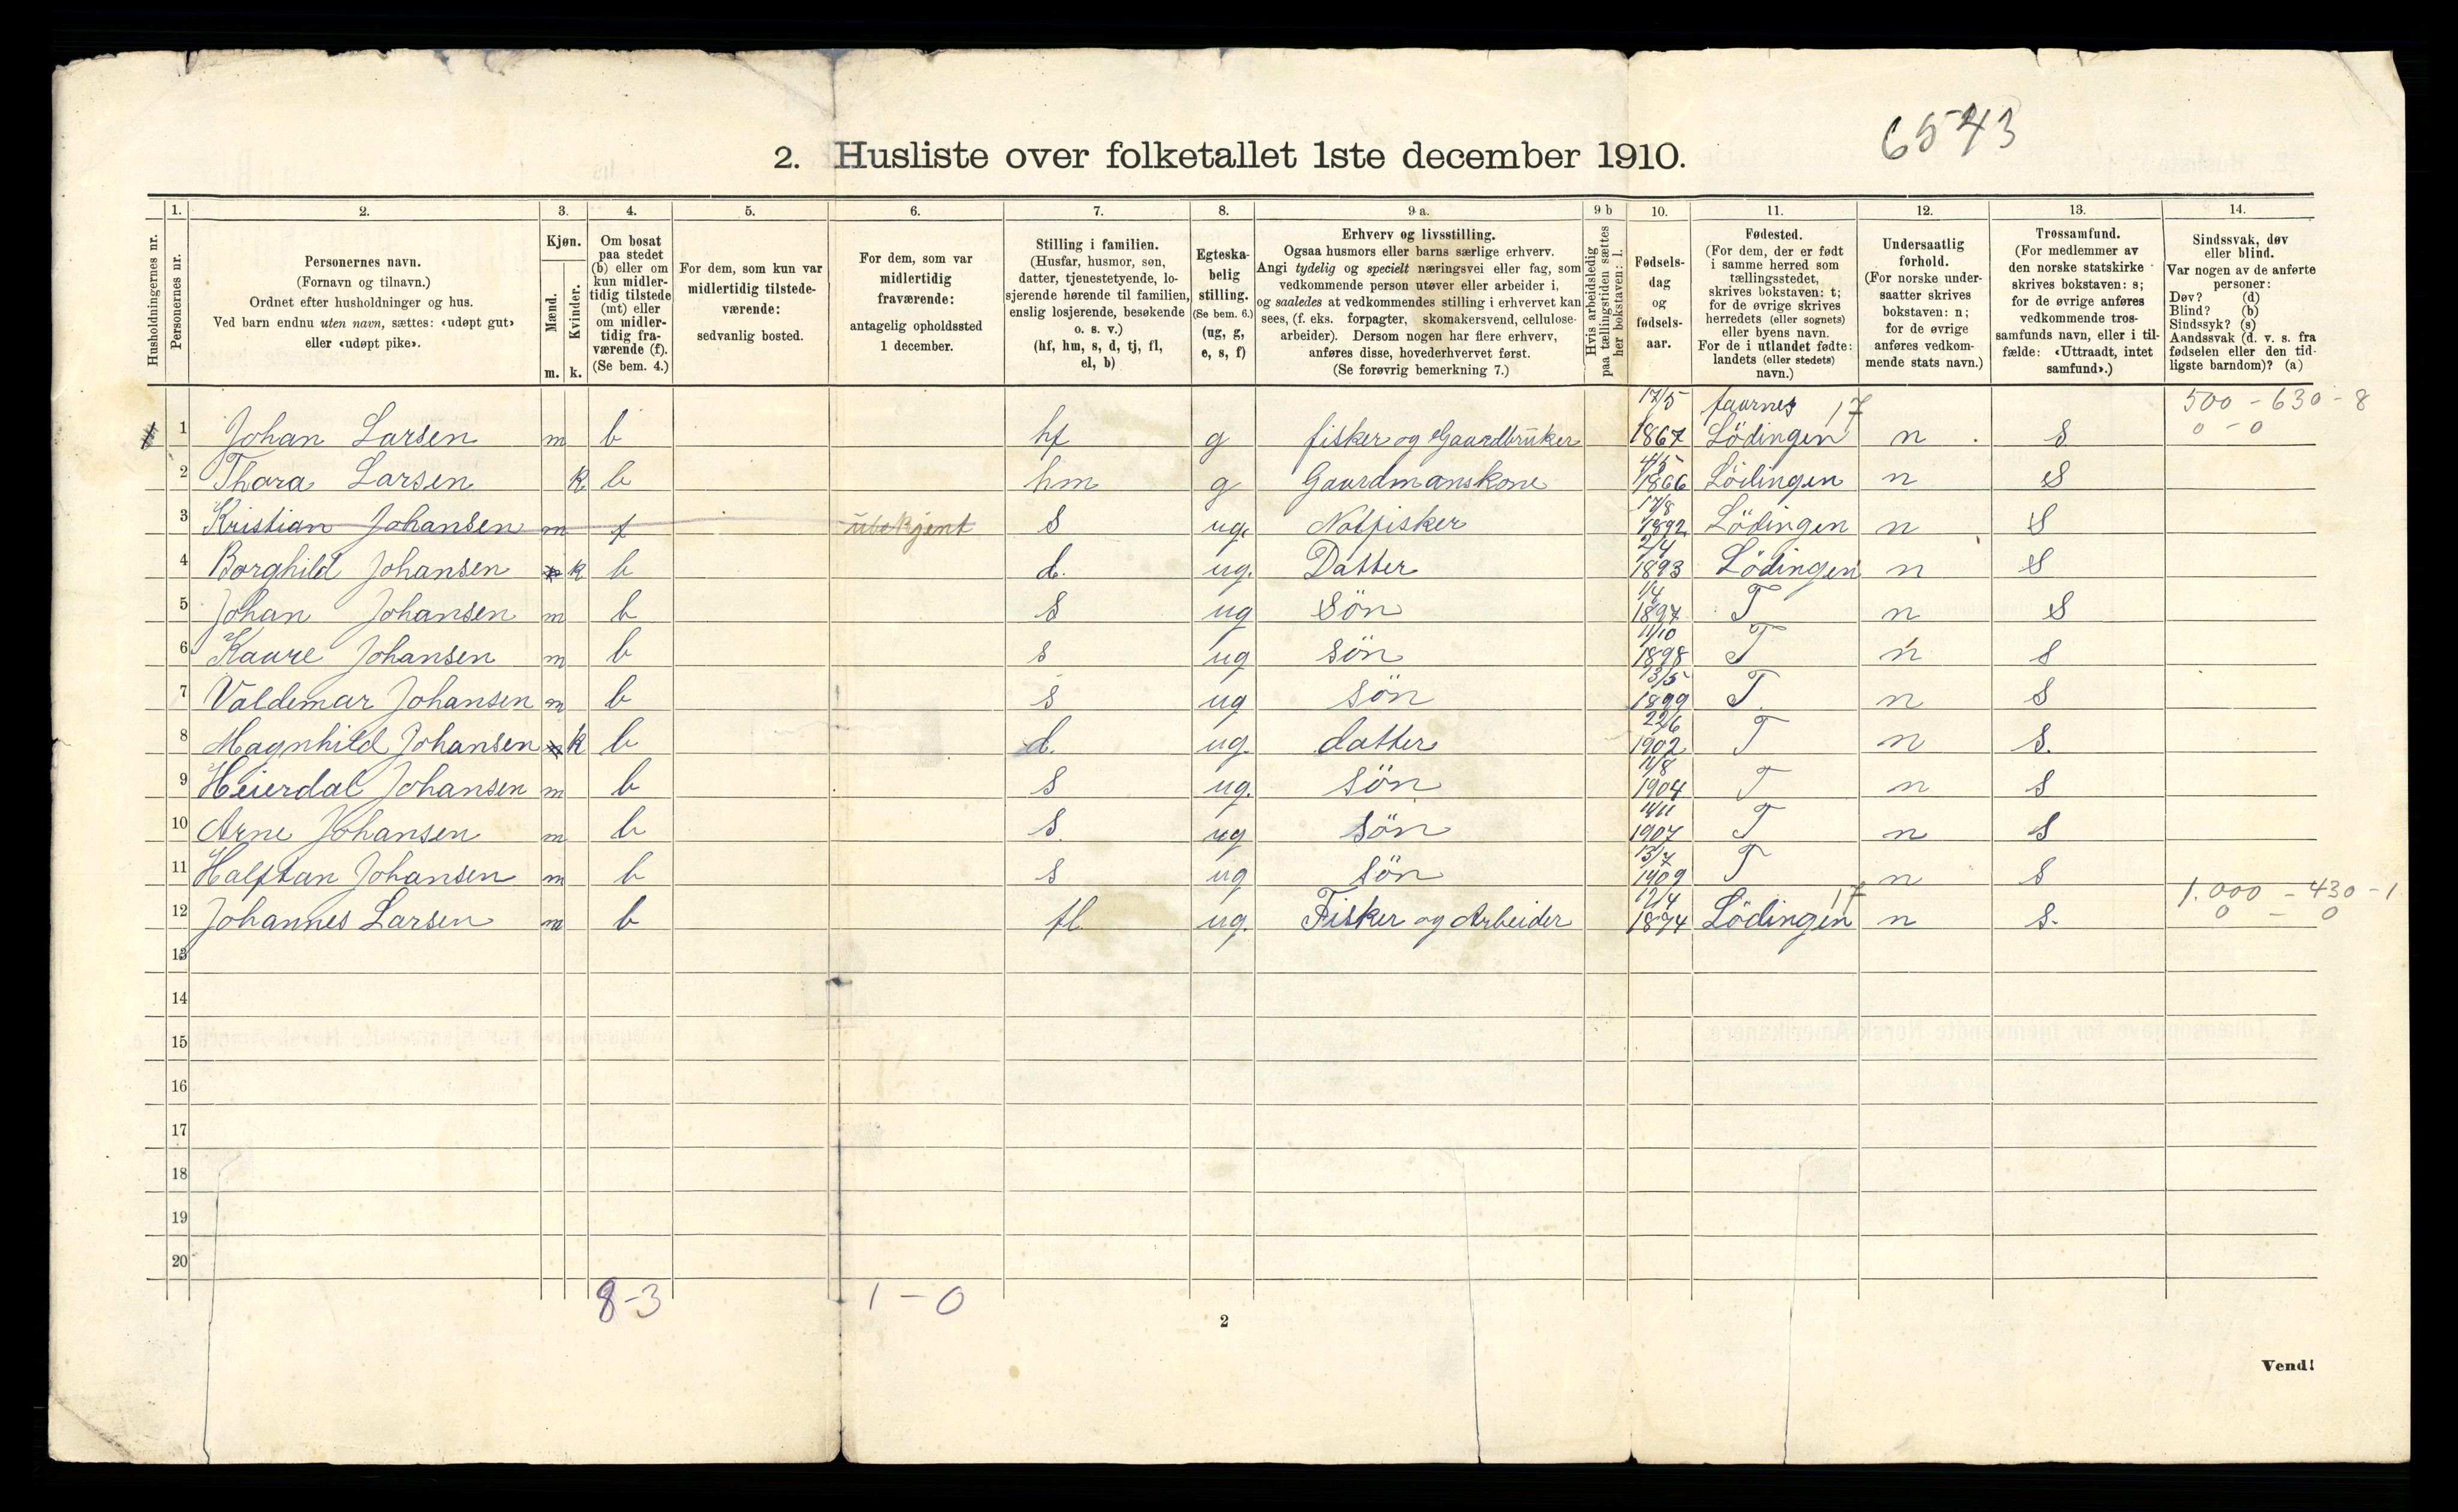 6543
2. Husliste over folketallet 1ste december 1910.
1. 2. 3. 4. 5. 6. 7. 8. 9 a. 9 b 10. 11. 12. 13. 14.
Husholdningernes nr.
Personernes nr.
Personernes navn.
(Fornavn og tilnavn.)
Ordnet efter husholdninger og hus.
Ved barn endnu uten navn, sættes: «udøpt gut»
eller «udøpt pike».
Kjøn.
Mænd.
Kvinder.
m. k.
Om bosat
paa stedet
(b) eller om
kun midler-
tidig tilstede
(mt) eller
om midler-
tidig fra-
værende (f).
(Se bem. 4.)
For dem, som kun var
midlertidig tilstede-
værende:
sedvanlig bosted.
For dem, som var
midlertidig
fraværende:
antagelig opholdssted
1 december.
Stilling i familien.
(Husfar, husmor, søn,
datter, tjenestetyende, lo-
sjerende hørende til familien,
enslig losjerende, besøkende
o. s. v.)
(hf, hm, s, d, tj, fl,
el, b)
Egteska-
belig
stilling.
(Se bem. 6.)
(ug, g,
e, s, f)
Erhverv og livsstilling.
Ogsaa husmors eller barns særlige erhverv.
Angi tydelig og specielt næringsvei eller fag, som
vedkommende person utøver eller arbeider i,
og saaledes at vedkommendes stilling i erhvervet kan
sees, (f. eks. forpagter, skomakersvend, cellulose-
arbeider). Dersom nogen har flere erhverv,
anføres disse, hovederhvervet først.
(Se forøvrig bemerkning 7.)
Hvis arbeidsledig
paa tællingstiden sættes
her bokstaven: l.
Fødsels-
dag
og
fødsels-
aar.
Fødested.
(For dem, der er født
i samme herred som
tællingsstedet,
skrives bokstaven: t;
for de øvrige skrives
herredets (eller sognets)
eller byens navn.
For de i utlandet fødte:
landets (eller stedets)
navn.)
Undersaatlig
forhold.
(For norske under-
saatter skrives
bokstaven: n;
for de øvrige
anføres vedkom-
mende stats navn.)
Trossamfund.
(For medlemmer av
den norske statskirke
skrives bokstaven: s;
for de øvrige anføres
vedkommende tros-
samfunds navn, eller i til-
fælde: «Uttraadt, intet
samfund».)
Sindssvak, døv
eller blind.
Var nogen av de anførte
personer:
Døv? (d)
Blind? (b)
Sindssyk? (s)
Aandssvak (d. v. s. fra
fødselen eller den tid-
ligste barndom)? (a)
17/5 17 500 - 630 - 8
1 Johan Larsen m b hf g fisker og Gaardbruker 1867 Lödingen n s 0 - 0
2 Thora Larsen k b hm g Gaardmanskone 4/5 1866 Lödingen n s
3 Kristian Johansen m f ubekjent s ug. Notfisker 17/8 1892 Lödingen n s
4 Borghild Johansen k b d. ug. Datter 2/4 1893 Lödingen n s
5 Johan Johansen m b s ug Sön 1897 T n s
6 Kaare Johansen m b s ug sön 11/10 1898 T n s
7 Valdemar Johansen m b s ug sön 13/5 1899 T. n s
8 Magnhild Johansen k b d. ug. datter 22/6 1902 T n s.
9 Heierdal Johansen m b s ug. sön 11/8 1904 T n s
10 Arne Johansen m b s. ug sön 14/11 1907 T n s
11 Halftan Johansen m b s ug sön 13/7 1909 T n s
12 Johannes Larsen m b fl ug. Fisker og Arbeider 12/4 1874 17 Lödingen n s. 1.000 - 430 - 1
0 - 0
13
14
15
16
17
18
19
20
8-3 1-0
2
Vend!